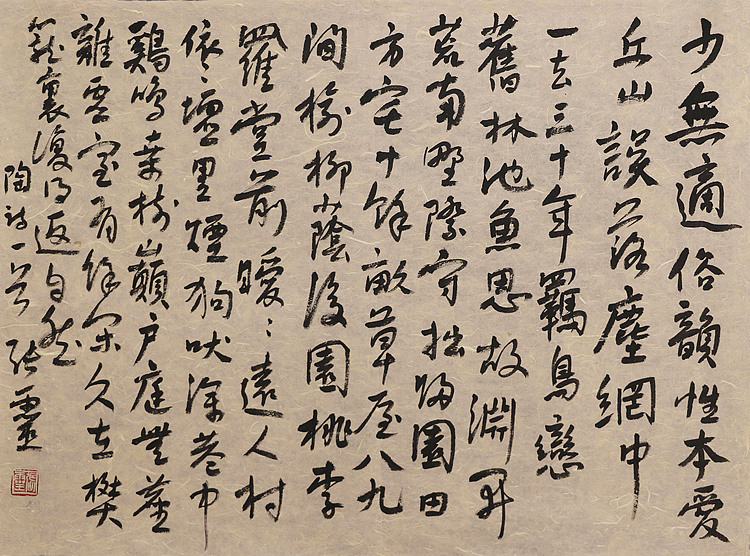 少無適俗韻性本愛
丘山誤落塵網中
一去三十年羈鳥戀
舊林池魚思故淵開
荒南野際守拙歸園田
方宅十餘畝草屋八九
間榆柳蔭後園桃李
羅堂前曖〻遠人村
依〻墟里煙狗吠深巷中
鷄鳴桑樹巔戶庭無塵
雜虛室有餘閒久在樊
籠裏復得返自然
陶詩一首 張靈